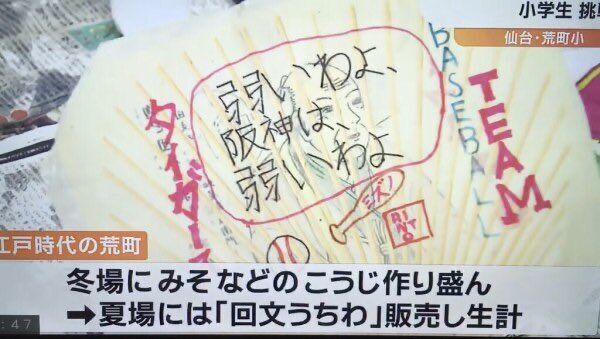 小学生 挑
仙台・荒町小
弱いわよ、
阪神は、
弱いわよ
タイガース
BASEBALL
TEAM
ミズノ
RIN
TO
江戸時代の荒町
冬場にみそなどのこうじ作り盛ん
➡夏場には「回文うちわ」販売し生計
:47